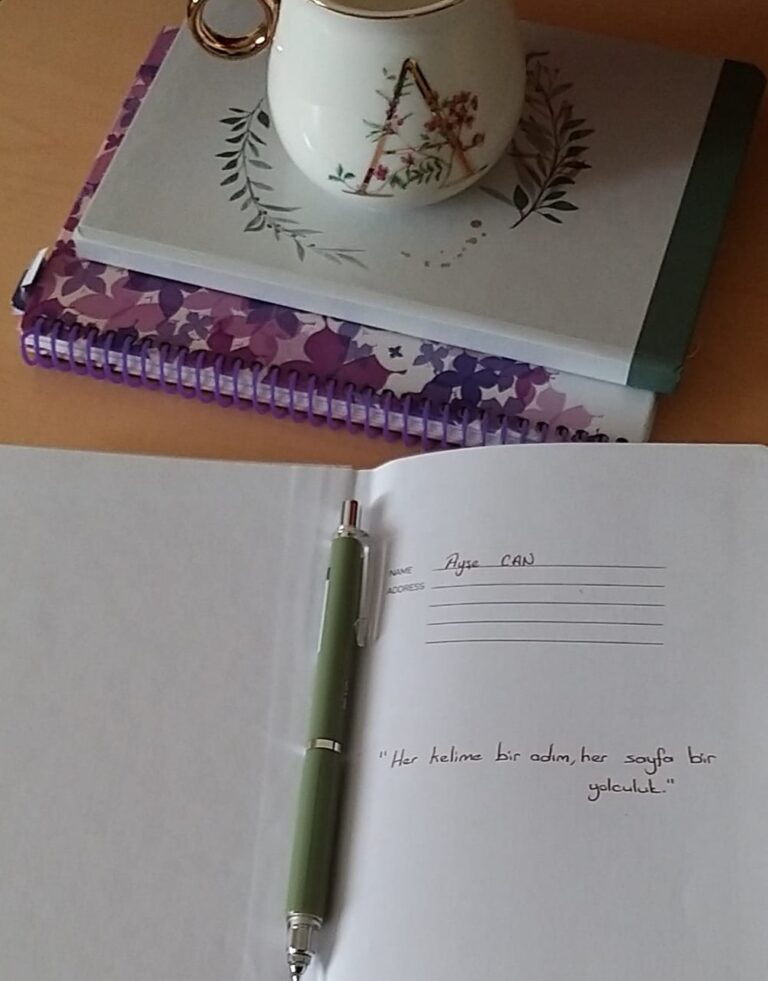 A
NAME Ayşe CAN
ADDRESS
"Her kelime bir adım, her sayfa bir
yolculuk."